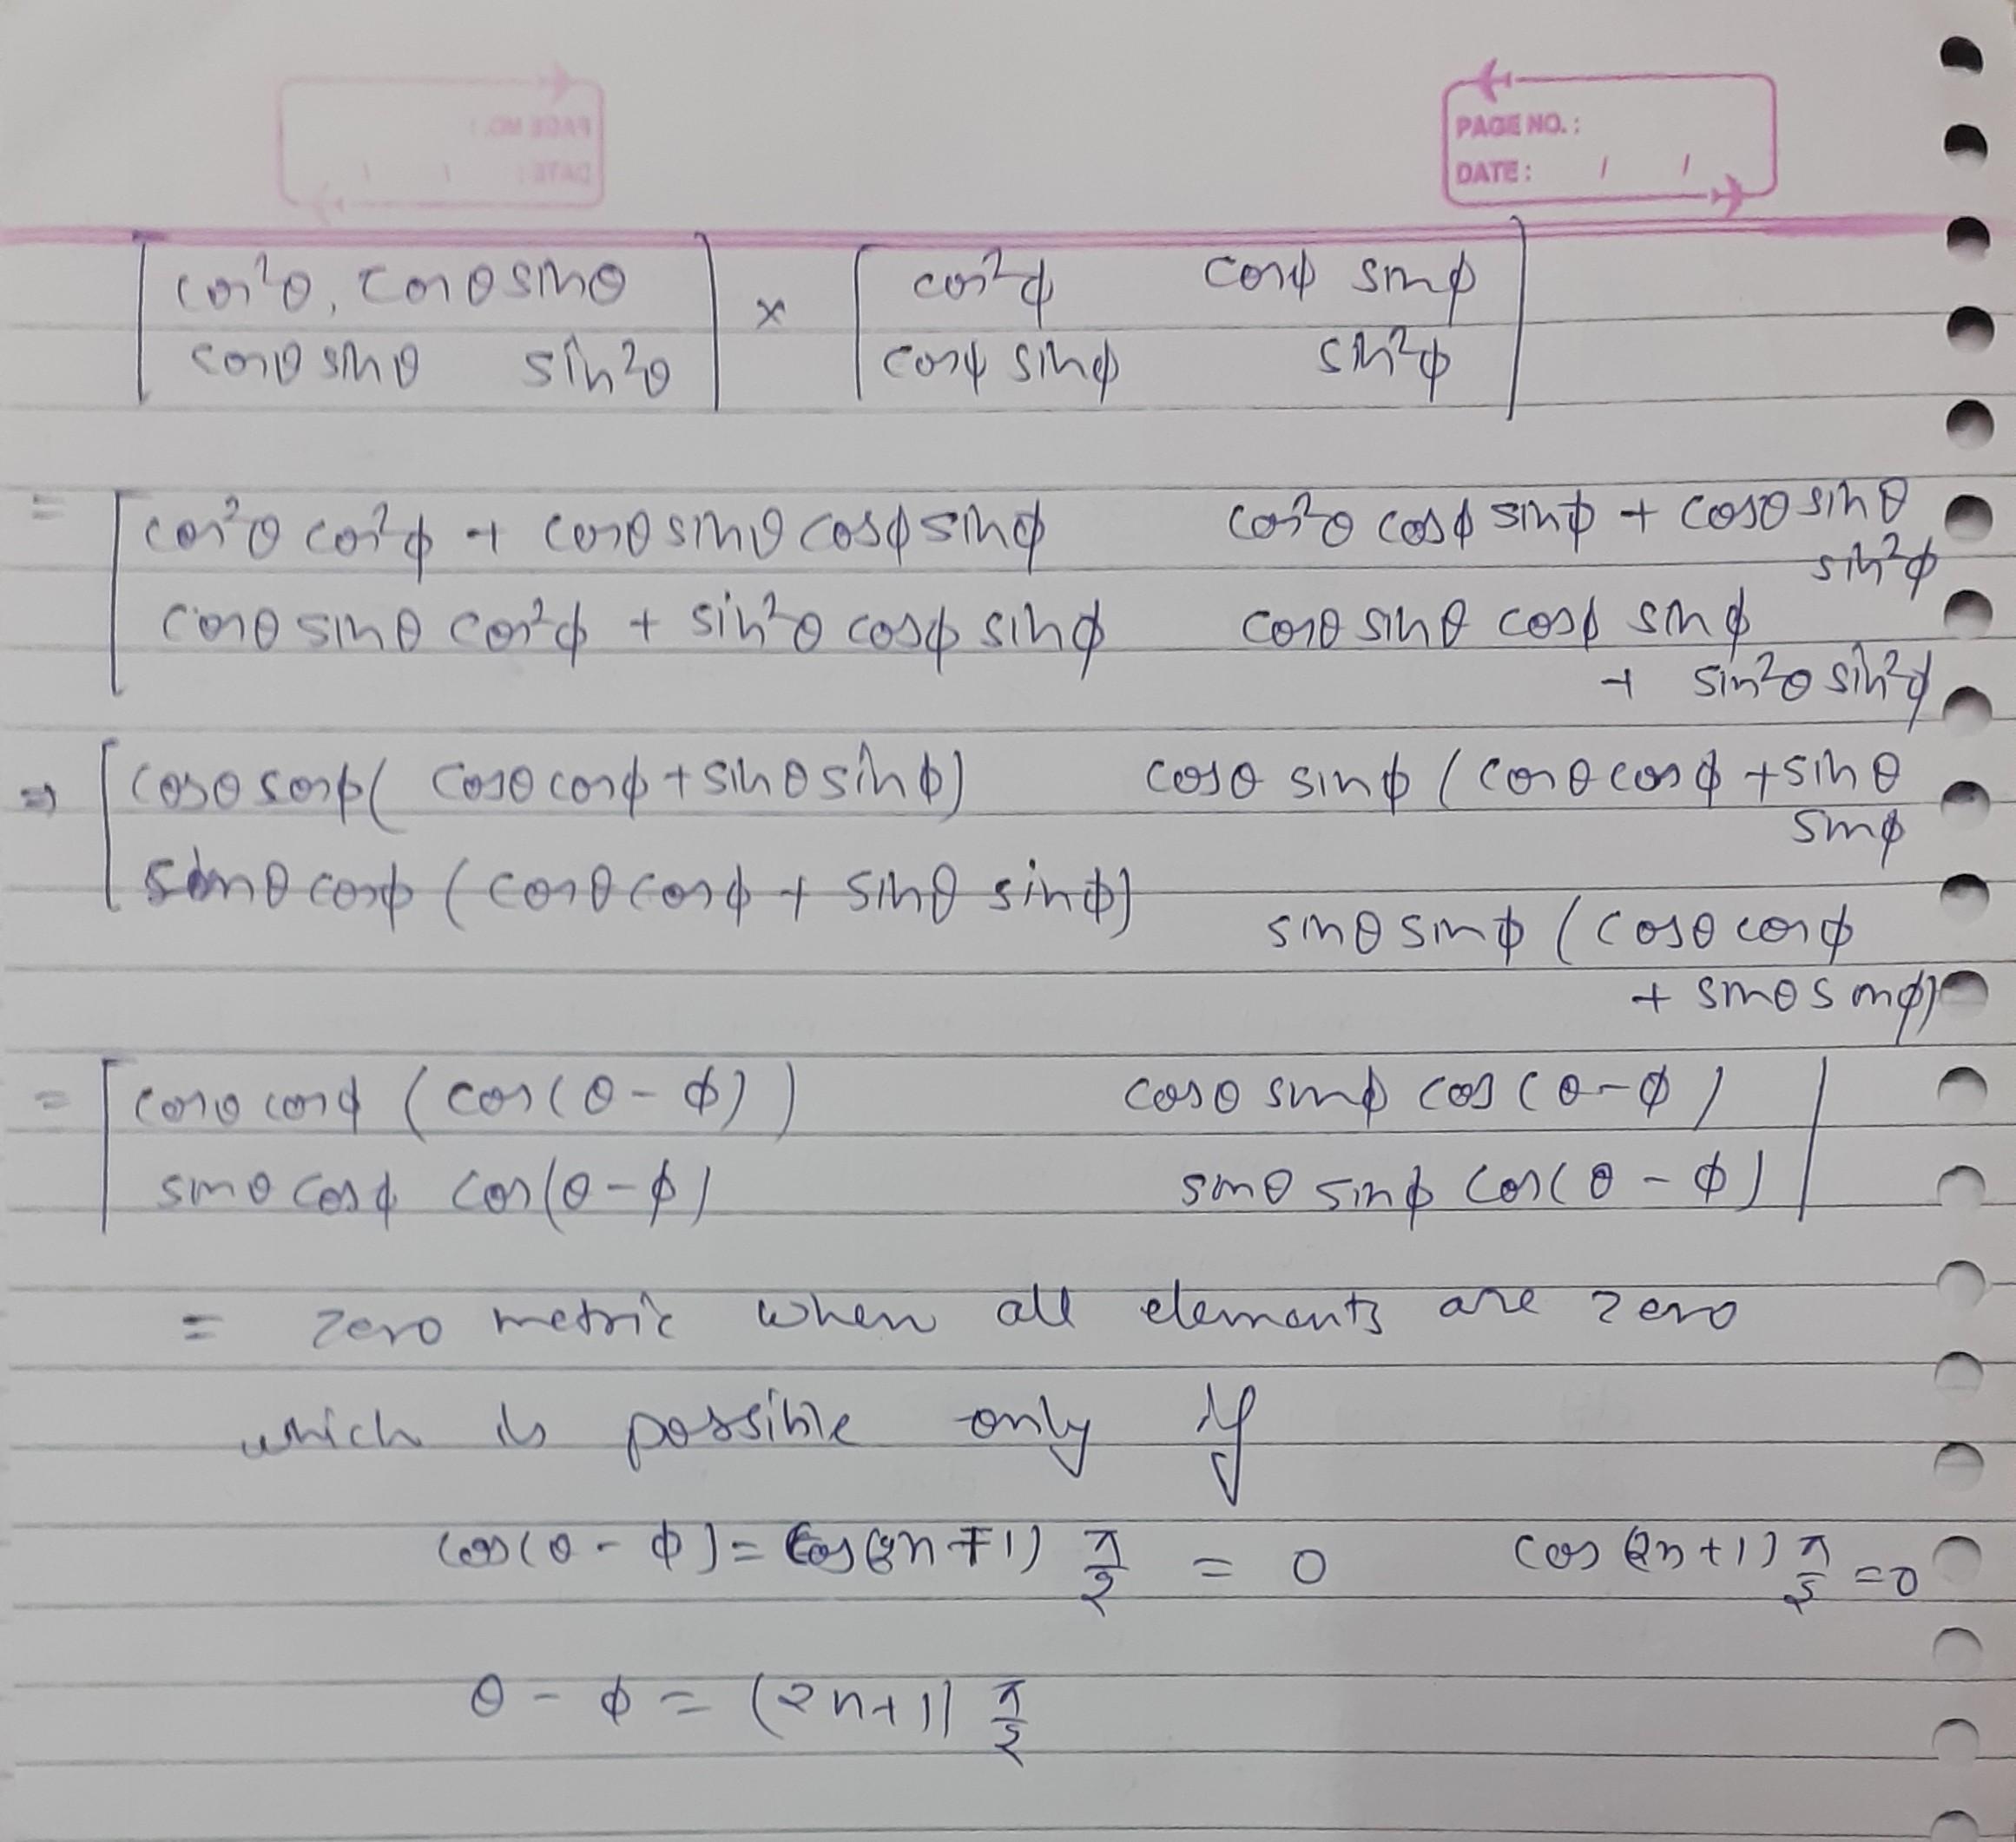 PAGE NO. :
DATE : / /
[cos²θ, cosθ sinθ] × [cos²φ cosφ sinφ]
[cosθ sinθ sin²θ] [cosφ sinφ sin²φ]
= [cos²θ cos²φ + cosθ sinθ cosφ sinφ cos²θ cosφ sinφ + cosθ sinθ
sin²φ
cosθ sinθ cos²φ + sin²θ cosφ sinφ cosθ sinθ cosφ sinφ
+ sin²θ sin²φ
⇒ [cosθ cosφ( cosθ cosφ + sinθ sinφ) cosθ sinφ (cosθ cosφ + sinθ
sinφ
sinθ cosφ (cosθ cosφ + sinθ sinφ)
sinθ sinφ (cosθ cosφ
+ sinθ sinφ)
= [cosθ cosφ (cos(θ - φ)) cosθ sinφ cos(θ-φ)
sinθ cosφ cos(θ-φ) sinθ sinφ cos(θ - φ)]
= zero metric when all elements are zero
which is possible only if
cos(θ - φ) = cos(2n+1) π/2 = 0 cos (2n+1) π/2 = 0
θ - φ = (2n+1) π/2